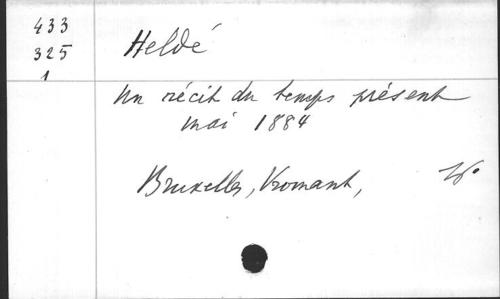 433
325
1
Heldé
Un récit du temps présent
mai 1884
Bruxelles, Vromant,